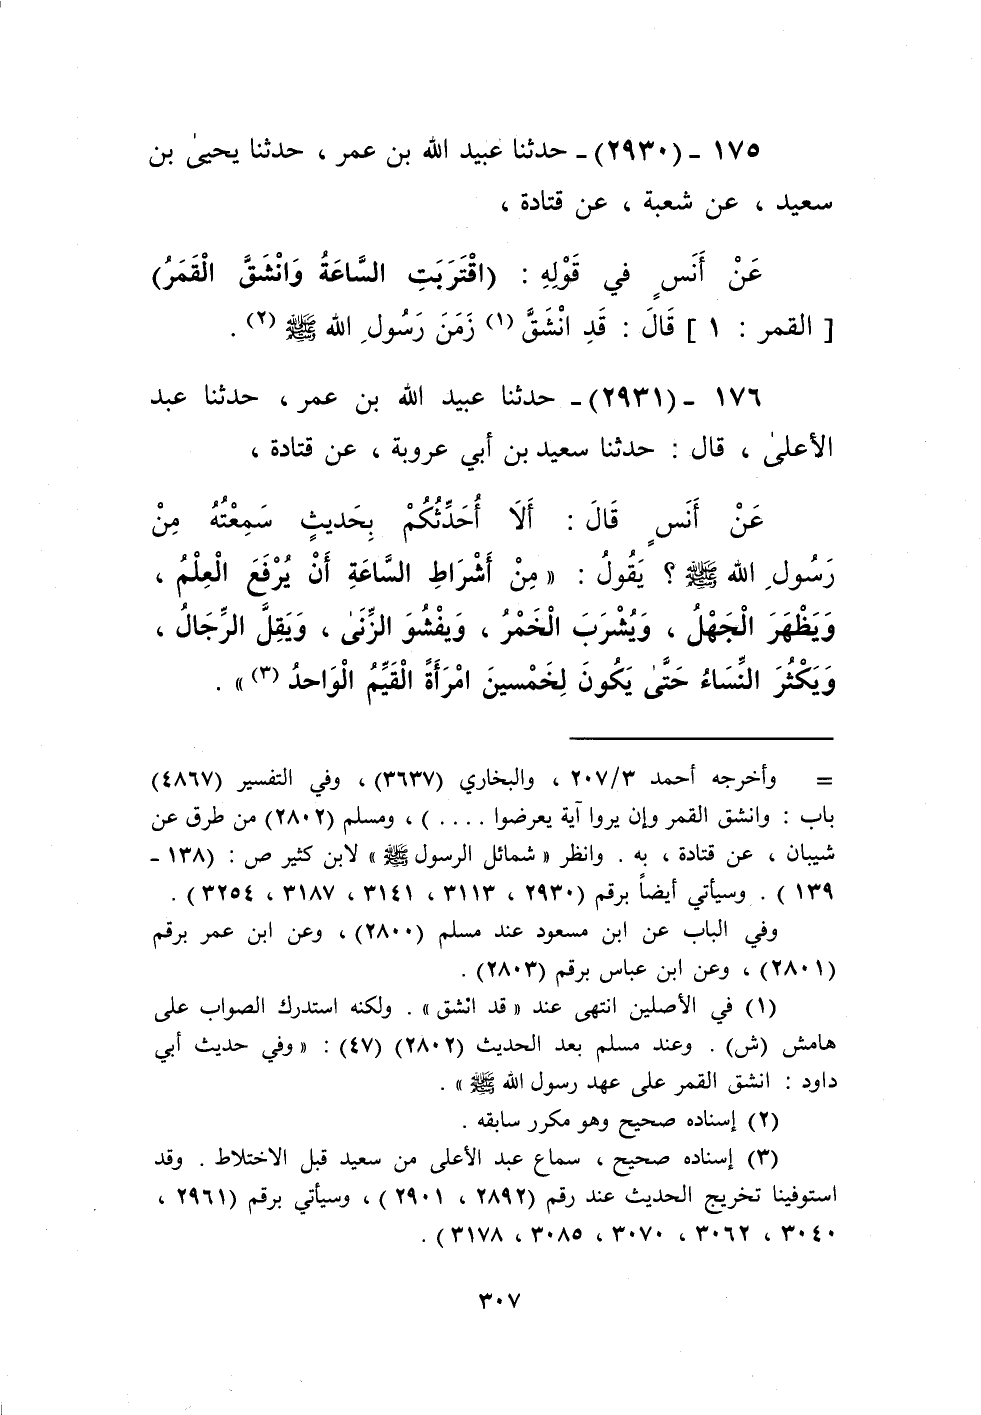 ١٧٥ ـ (٢٩٣٠) ـ حدثنا عبيد الله بن عمر ، حدثنا يحيىٰ بن
سعيد ، عن شعبة ، عن قتادة ،
عَنْ أَنَسٍ في قَوْلِهِ : (اقْتَرَبَتِ السَّاعَةُ وَانْشَقَّ الْقَمَرُ)
[ القمر : ١ ] قَالَ : قَدِ انْشَقَّ (١) زَمَنَ رَسُولِ الله ﷺ (٢) .
١٧٦ ـ (٢٩٣١) ـ حدثنا عبيد الله بن عمر ، حدثنا عبد
الأعلىٰ ، قال : حدثنا سعيد بن أبي عروبة ، عن قتادة ،
عَنْ أَنَسٍ قَالَ : أَلَا أُحَدِّثُكُمْ بِحَديثٍ سَمِعْتُهُ مِنْ
رَسُولِ الله ﷺ ؟ يَقُولُ : « مِنْ أَشْرَاطِ السَّاعَةِ أَنْ يُرْفَعَ الْعِلْمُ ،
وَيَظْهَرَ الْجَهْلُ ، وَيُشْرَبَ الْخَمْرُ ، وَيَفْشُوَ الزِّنَىٰ ، وَيَقِلَّ الرِّجَالُ ،
وَيَكْثُرَ النِّسَاءُ حَتَّىٰ يَكُونَ لِخَمْسينَ امْرَأَةً الْقَيِّمُ الْوَاحدُ (٣) » .
= وأخرجه أحمد ٢٠٧/٣ ، والبخاري (٣٦٣٧) ، وفي التفسير (٤٨٦٧)
باب : وانشق القمر وإن يروا آية يعرضوا .... ) ، ومسلم (٢٨٠٢) من طرق عن
شيبان ، عن قتادة ، به . وانظر « شمائل الرسول ﷺ » لابن كثير ص : (١٣٨ -
١٣٩ ) . وسيأتي أيضاً برقم (٢٩٣٠ ، ٣١١٣ ، ٣١٤١ ، ٣١٨٧ ، ٣٢٥٤ ) .
وفي الباب عن ابن مسعود عند مسلم (٢٨٠٠) ، وعن ابن عمر برقم
(٢٨٠١) ، وعن ابن عباس برقم (٢٨٠٣) .
(١) في الأصلين انتهى عند « قد انشق » . ولكنه استدرك الصواب على
هامش (ش) . وعند مسلم بعد الحديث (٢٨٠٢) (٤٧) : « وفي حديث أبي
داود : انشق القمر على عهد رسول الله ﷺ » .
(٢) إسناده صحيح وهو مكرر سابقه .
(٣) إسناده صحيح ، سماع عبد الأعلى من سعيد قبل الاختلاط . وقد
استوفينا تخريج الحديث عند رقم (٢٨٩٢ ، ٢٩٠١ ) ، وسيأتي برقم (٢٩٦١ ،
٣٠٤٠ ، ٣٠٦٢ ، ٣٠٧٠ ، ٣٠٨٥ ، ٣١٧٨ ) .
٣٠٧